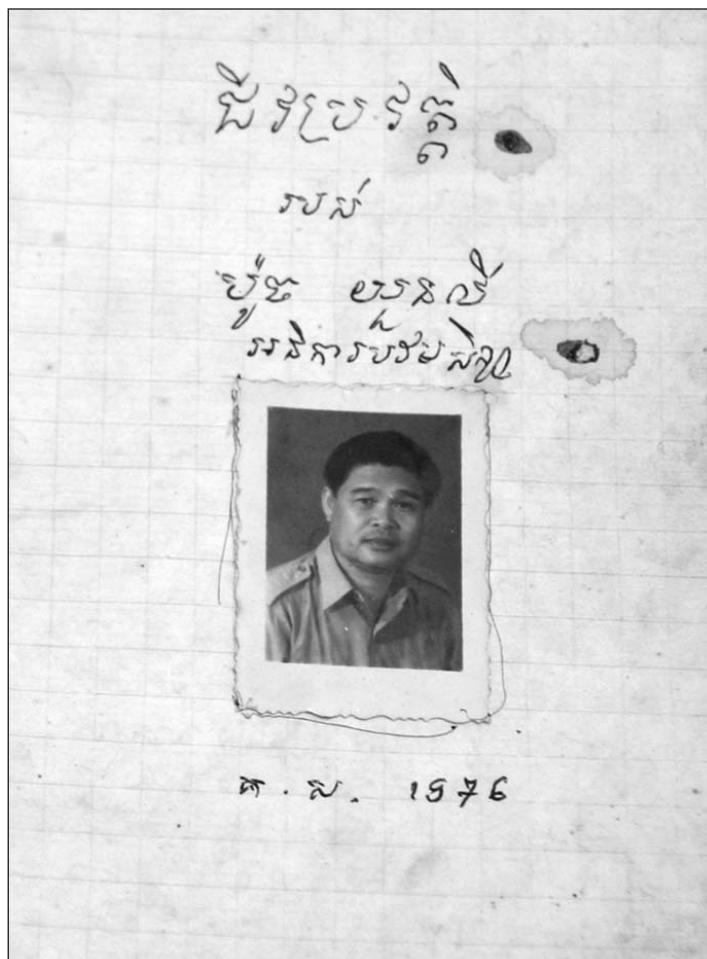 ជីវប្រវត្តិ
របស់
ប៉ូច យួនលី
អធិការបឋមសិក្សា
គ.ស. 1976